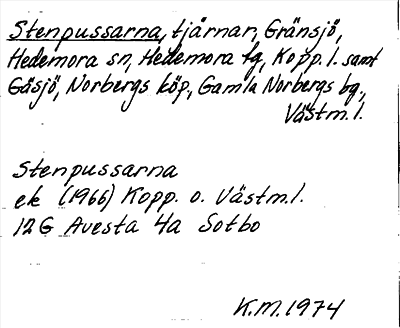 Stenpussarna, tjärnar, Gränsjö,
Hedemora sn, Hedemora fg, Kopp. l. samt
Gåsjö, Norbergs köp, Gamla Norbergs bg.,
Västm. l.
Stenpussarna
ek (1966) Kopp. o. Västm. l.
12G Avesta 4a Sotbo
K.M. 1974